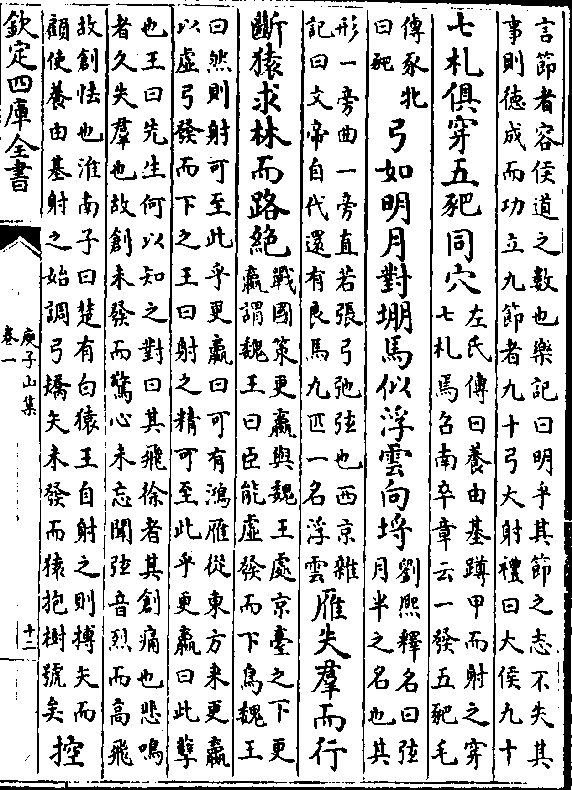 言節者容侯道之數也樂記曰明乎其節之志不失其
事則德成而功立九節者九十弓大射禮曰大侯九十
七札俱穿五豝同穴
左氏傳曰養由基蹲甲而射之穿
七札馬召南卒章云一發五豝毛
傳豕牝
曰豝
弓如明月對堋馬似浮雲向埓
劉熙釋名曰弦
月半之名也其
形一旁曲一旁直若張弓弛弦也西京雜
記曰文帝自代還有良馬九匹一名浮雲
雁失羣而行
斷猿求林而路絶
戰國策更羸與魏王處京臺之下更
羸謂魏王曰臣能虛發而下鳥魏王
曰然則射可至此乎更羸曰可有鴻雁從東方来更羸
以虛弓發而下之王曰射之精可至此乎更羸曰此孽
也王曰先生何以知之對曰其飛徐者其創痛也悲鳴
者久失羣也故創未發而驚心未忘聞弦音烈而高飛
故創怯也淮南子曰楚有白猿王自射之則搏矢而
顧使養由基射之始調弓矯矢未發而猿抱樹號矣
控
欽定四庫全書
庾子山集
卷一
十二